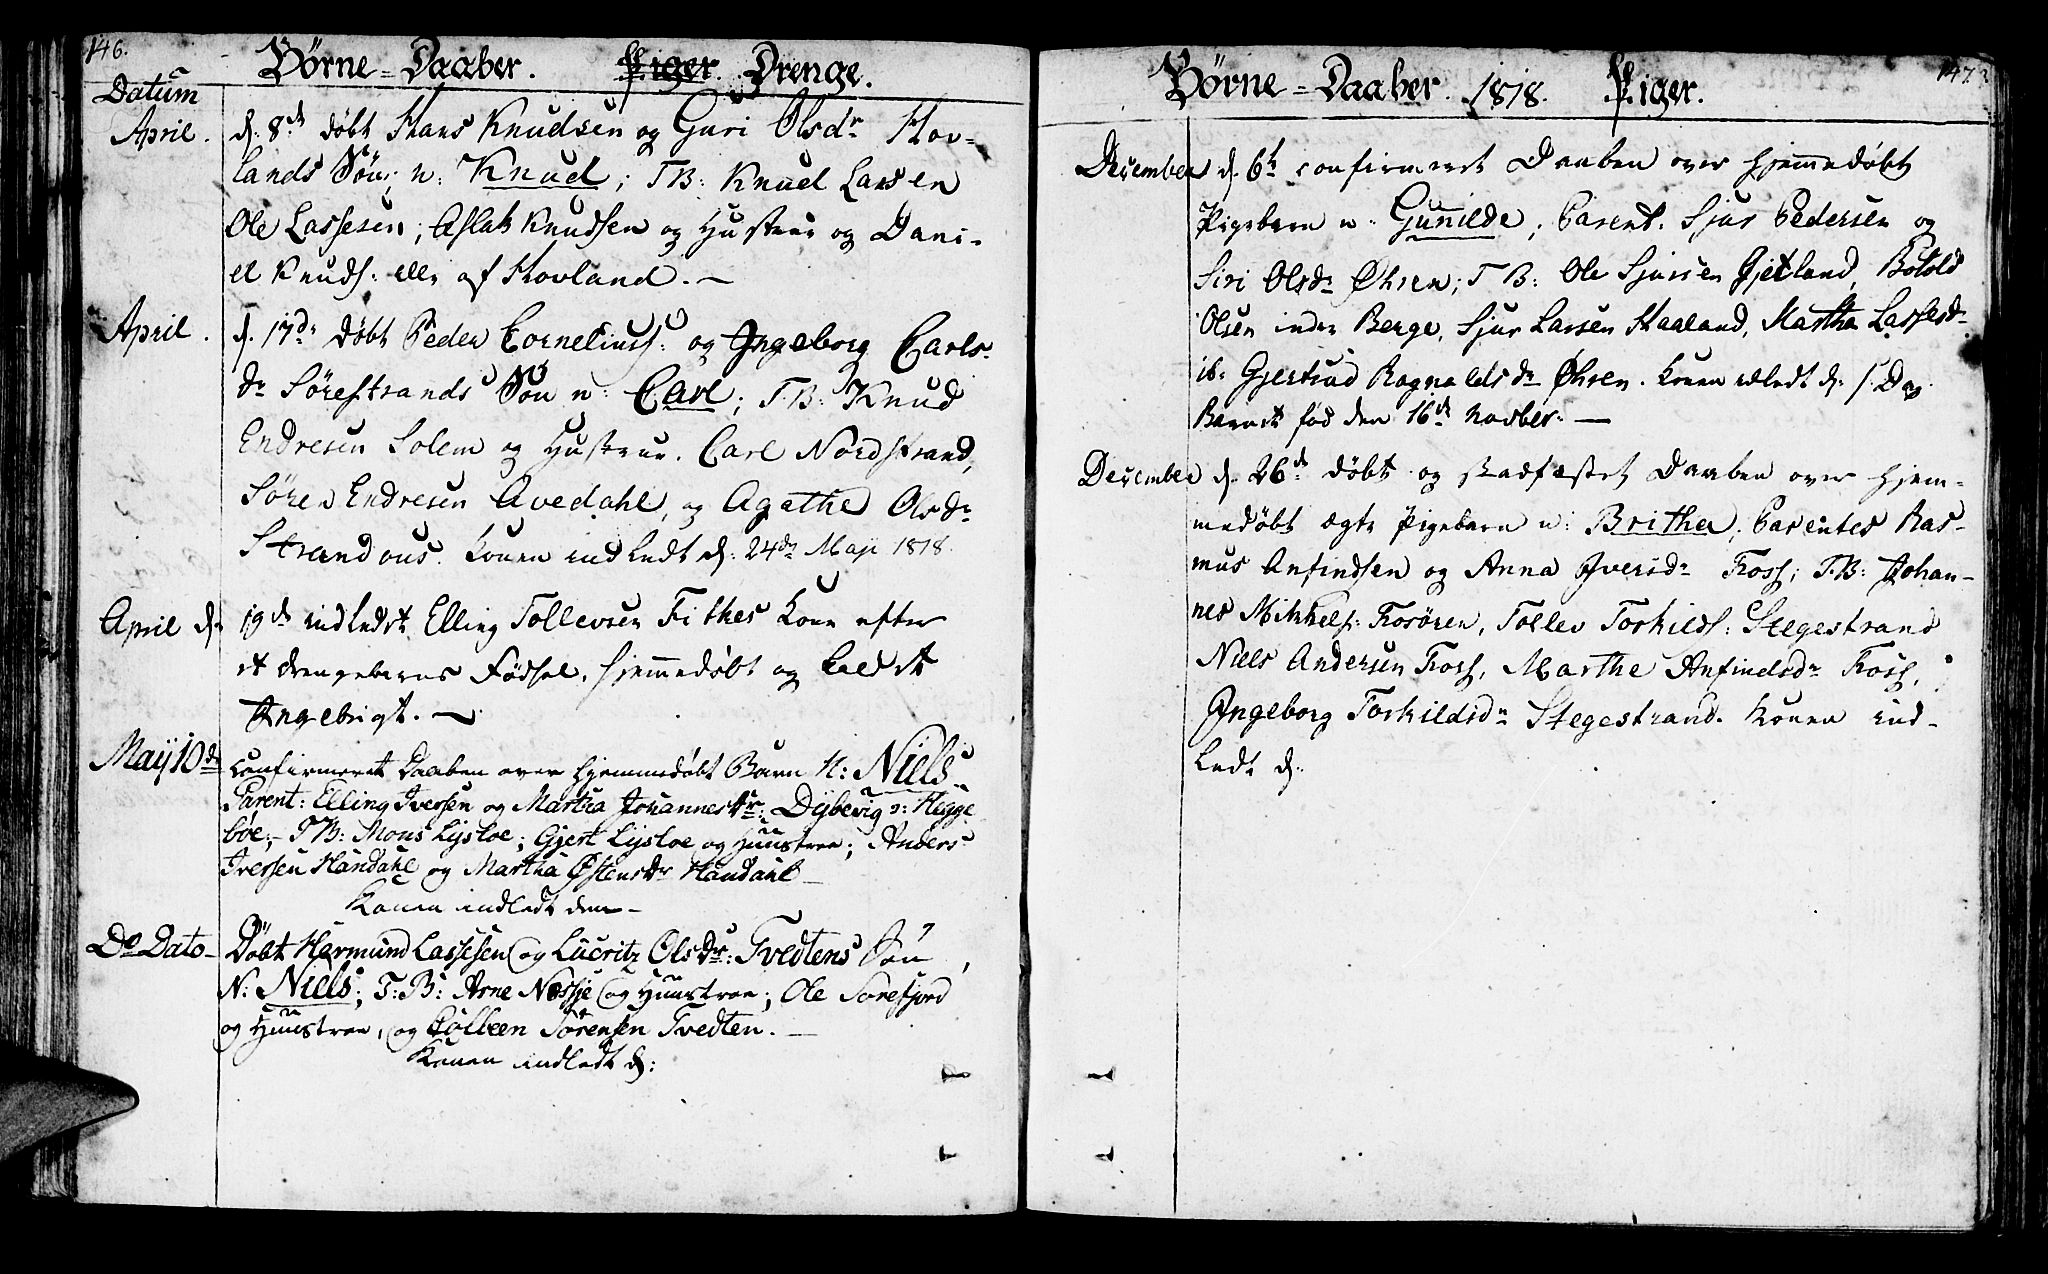 146.
Börne=Daaber. Piger. Drenge.
Datum
April. d. 8de döbt Hans Knudsen og Guri Olsdr Hov-
lands Sön; n: Knud; T.B: Knud Larsen
Ole Lassesen; Aslak Knudsen og Hustrue og Dani-
el Knuds: alle af Hovland. —
April. d. 17de döbt Peder Corneliuss: og Ingeborg Carls-
dr Sörestrands Sön n: Carl; T.B: Knud
Endresen Solem og Hustrue. Carl Nordstrand,
Sören Endresen Avedahl, og Agathe Olsdr
Strandous. Konen indledt d: 24de Maji 1818.
April d. 19de indledt Elling Tollevsen Fitkes Kone efter
et drengebarns Födsel, hjemmedöbt og kaldet
Ingebrigt. —
Maÿ 10de Confirmeret Daaben over hjemmedöbt Barn N: Niels
Parent: Elling Iversen og Martha Johannesdr: Dÿbevig v: Hegge
böe; T.B: Mons Lÿsloe; Gjert Lÿsloe og Huustroe; Anders
Iversen Handahl og Martha Östensdr Handahl —
Konen indledt den —
Do Dato — Döbt Harmund Lassesen og Lucritz Olsdr: Tvedtens Sön,
N: Niels; T:B: Arne Nessje og Huustroe; Ole Sörefjord
og Huustroe, og Sörensen Tvedten. —
Konen indledt d:
147.
Börne=Daaber. 1818. Piger.
December d. 6te confirmeret Daaben over hjemmedöbt
Pigebarn n: Gunilde; Parent. Sjur Pedersen og
Siri Olsdr Öhren; T.B: Ole Sjursen Gjetland, Botold
Olsen indre Berge, Sjur Larsen Haaland, Martha Lassesdr
ib: Gjertrud Ragnaldsdr Öhren. Konen indledt d: s. Dag
Barnet föd den 16de Novber. —
December d. 26de döbt og stadfæstet Daaben over hjem-
medöbt ægte Pigebarn n: Britha; Parentes Ras-
mus Anfindsen og Anna Iversdr Foss; T.B: Johan-
nes Mikkels: Fosören, Tollev Torkilds: Stegestrand
Niels Andersen Foss, Marthe Anfindsdr Foss,
Ingeborg Torkildsdr Stegestrand. Konen ind-
ledt d: